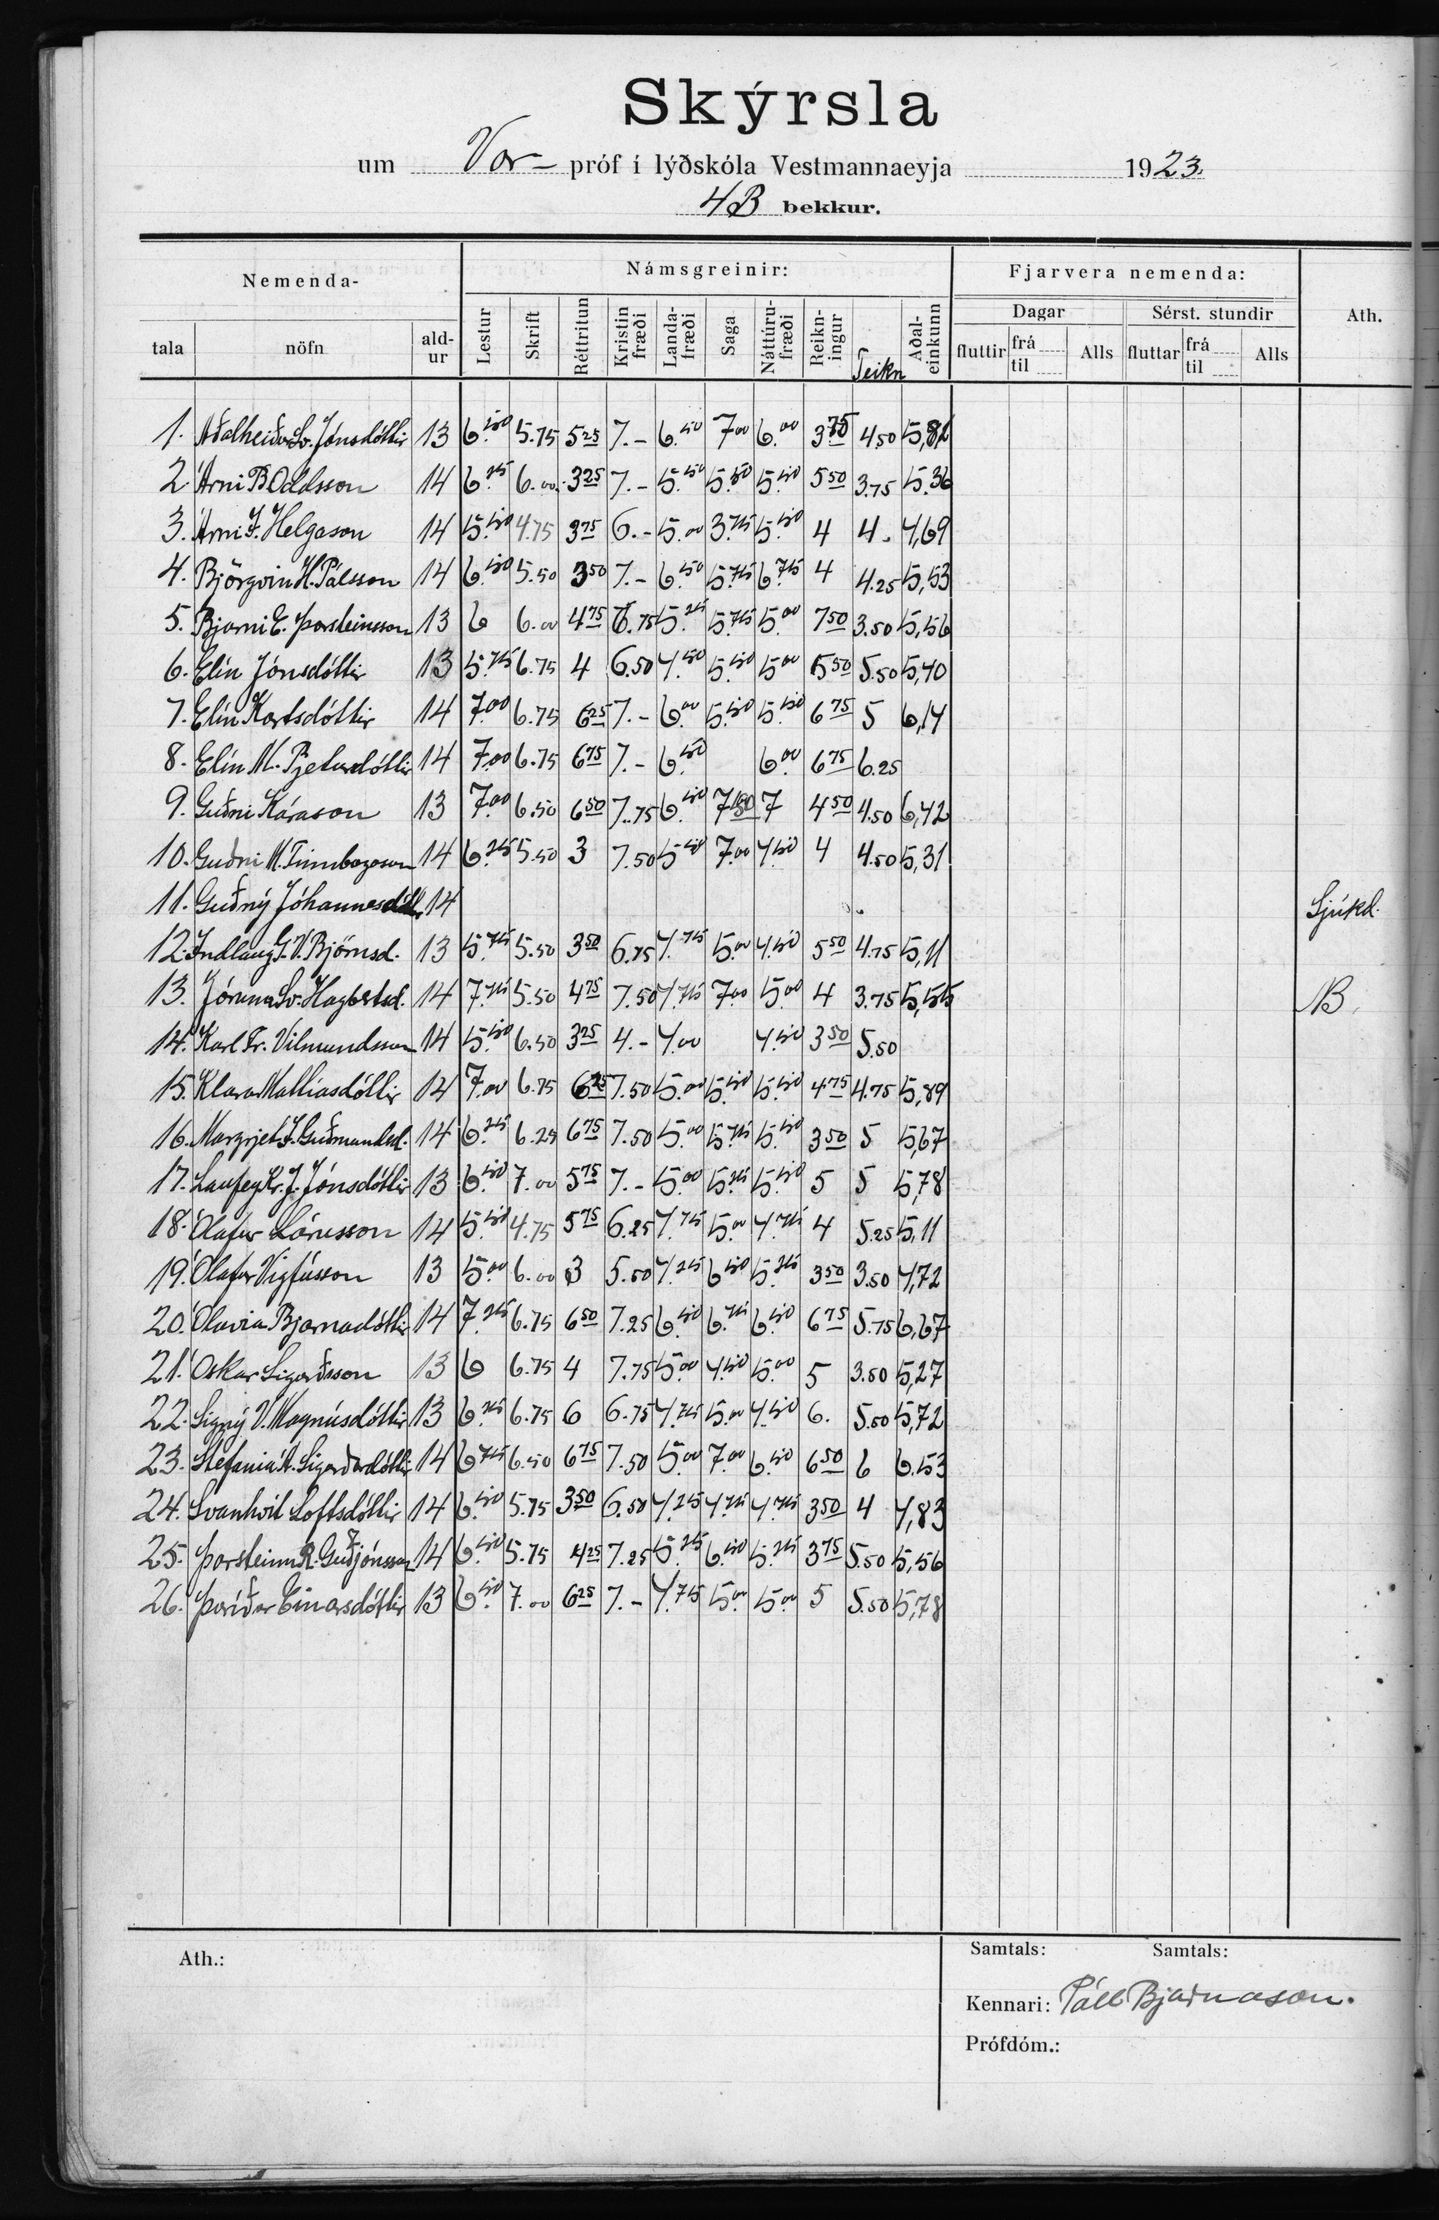 Skýrsla
um Vor- próf í lýðskóla Vestmannaeyja 1923.
4B bekkur.
Nemenda- Námsgreinir: Fjarvera nemenda: Ath.
tala nöfn ald-ur Lestur Skrift Réttritun Kristinfræði Landa-fræði Saga Náttúru-fræði Reikn-ingur Teikn Aðal-einkunn Dagar Sérst. stundir
fluttir frá til Alls fluttar frá til Alls
1. Aðalheiður Sv. Jónsdóttir 13 6.50 5.75 5 25 7.- 6.50 7 00 6.00 3 75 4.50 5,82
2 Árni B Oddsson 14 6.25 6.00 3 25 7.- 5.50 5.50 5.50 5 50 3.75 5.36
3. Árni J. Helgason 14 5.50 4.75 3 75 6.- 5.00 3.75 5.50 4 4. 4,69
4. Björgvin H. Pálsson 14 6.50 5.50 3 50 7.- 6.50 5.75 6.75 4 4.25 5,53
5. Bjarni E. Þorsteinsson 13 6 6.00 4 75 6.75 5.25 5.75 5.00 7 50 3.50 5,56
6. Elín Jónsdóttir 13 5.75 6.75 4 6.50 4.50 5.50 5.00 5 50 5.50 5,40
7. Elín Kortsdóttir 14 7.00 6.75 6 25 7.- 6.00 5.50 5.50 6 75 5 6,14
8. Elín M. Pjetursdóttir 14 7.00 6.75 6 75 7.- 6.50 6.00 6 75 6.25
9. Guðni Kárason 13 7.00 6.50 6 50 7.75 6.50 7 50 7 4 50 4.50 6,42
10. Guðni M. Finnbogason 14 6.25 5.50 3 7.50 5.50 7.00 4.50 4 4.50 5,31
11. Guðný Jóhannesdóttir 14 Sjúkd.
12. Indlaug G. V. Björnsd. 13 5.75 5.50 3 50 6.75 4.75 5.00 4.50 5 50 4.75 5,11
13. Jórunn Sv. Hagbertsd. 14 7.75 5.50 4 75 7.50 4.75 7.00 5.00 4 3.75 5,55 B.
14. Karl Fr. Vilmundsson 14 5.50 6.50 3 25 4.- 4.00 4.50 3 50 5.50
15. Klara Matthíasdóttir 14 7.00 6.75 6 25 7.50 5.00 5.50 5.50 4 75 4.75 5,89
16. Margrjet J. Guðmundsd. 14 6.25 6.25 6 75 7.50 5.00 5.75 5.50 3 50 5 5,67
17. Laufey Kr. J. Jónsdóttir 13 6.50 7.00 5 75 7.- 5.00 5.25 5.50 5 5 5,78
18. Ólafur Lárusson 14 5.50 4.75 5 75 6.25 4.75 5.00 4.75 4 5.25 5,11
19. Ólafur Vigfússon 13 5.00 6.00 3 5.50 4.25 6.50 5.25 3 50 3.50 4,72
20. Ólavía Bjarnadóttir 14 7.25 6.75 6 50 7.25 6.50 6.75 6.50 6 75 5.75 6,67
21. Óskar Sigurðsson 13 6 6.75 4 7.75 5.00 4.50 5.00 5 3.50 5,27
22. Signý V. Magnúsdóttir 13 6.75 6.75 6 6.75 4.75 5.00 4.50 6. 5.50 5,72
23. Stefanía Á. Sigurðardóttir 14 6.75 6.50 6 75 7.50 5.00 7.00 6.50 6 50 6 6.53
24. Svanhvít Loftsdóttir 14 6.50 5.75 3 50 6.50 4.25 4.75 4.75 3 50 4 4,83
25. Þorsteinn R. Guðjónsson 14 6.50 5.75 4 25 7.25 5.25 6.50 5.25 3 75 5.50 5,56
26. Þuríður Einarsdóttir 13 6.50 7.00 6 25 7.- 4.75 5.00 5.00 5 5.50 5,78
Ath.: Samtals: Samtals:
Kennari: Páll Bjarnason.
Prófdóm.: